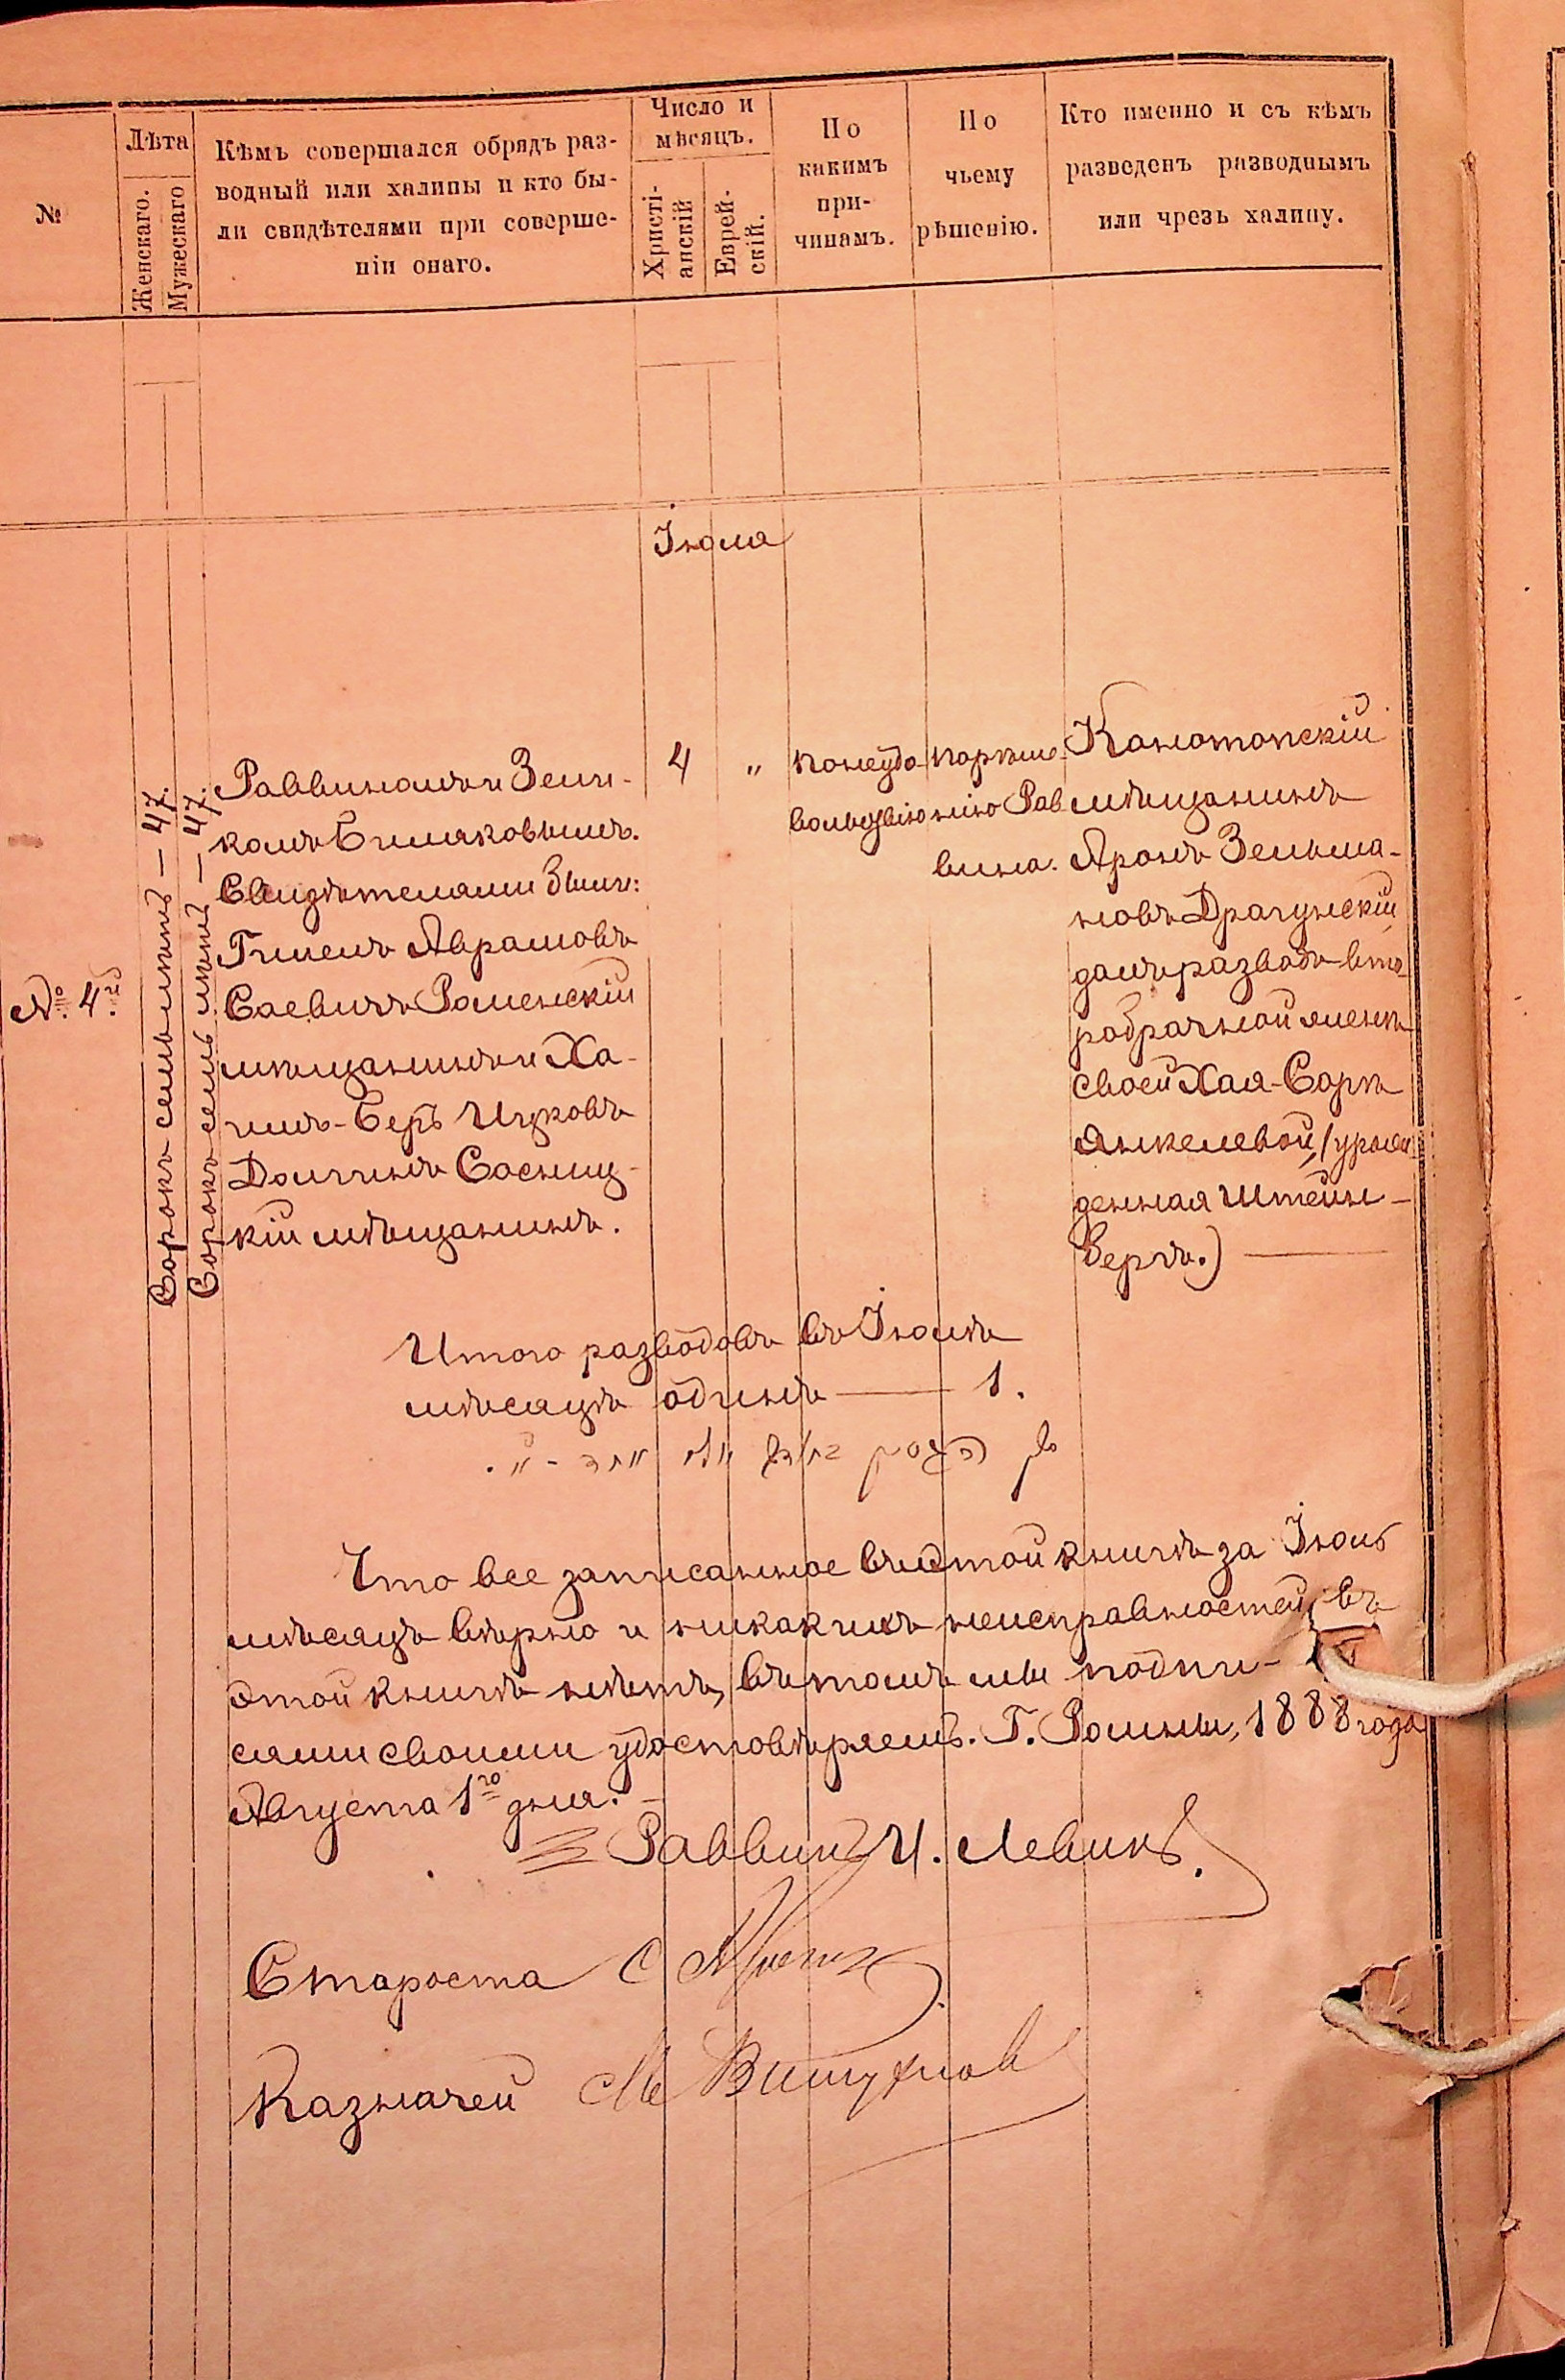 №
Лѣта
Женскаго.
Мужескаго
Кѣмъ совершался обрядъ раз-
водный или халицы и кто бы-
ли свидѣтелями при соверше-
ніи онаго.
Число и
мѣсяцъ.
Христі-
анскій
Еврей-
скій.
По
какимъ
при-
чинамъ.
По
чьему
рѣшенію.
Кто именно и съ кѣмъ
разведенъ разводнымъ
или чрезъ халицу.
Іюля
№ 4й
Сорокъ семь лѣтъ — 47.
Сорокъ семь лѣтъ — 47.
Раввиномъ
Свидѣтелями были:
Гилель Аврамовъ
Роменскій
мѣщанинъ и Ха-
имъ-Беръ Ицковъ
Долгинъ Сосниц-
кій мѣщанинъ.
4
"
По неудо-
вольствію
По рѣше-
нію Рав-
вина.
Конотопскій
мѣщанинъ
Аронъ Зельма-
новъ Драгунскій
далъ разводъ вто-
робрачной женѣ
своей Хая-Сорѣ
Янкелевой, (урож-
денная Штейн-
бергъ.)
Итого разводовъ въ Іюлѣ
мѣсяцѣ одинъ — 1.
Что все записанное въ этой книгѣ за Іюль
мѣсяцъ вѣрно и никакихъ неисправностей въ
этой книгѣ нѣтъ, въ томъ мы подпи-
сями своими удостовѣряемъ. Г. Ромны, 1888 года
Августа 1го дня.
Раввинъ И. Левинъ.
Староста С
Казначей М